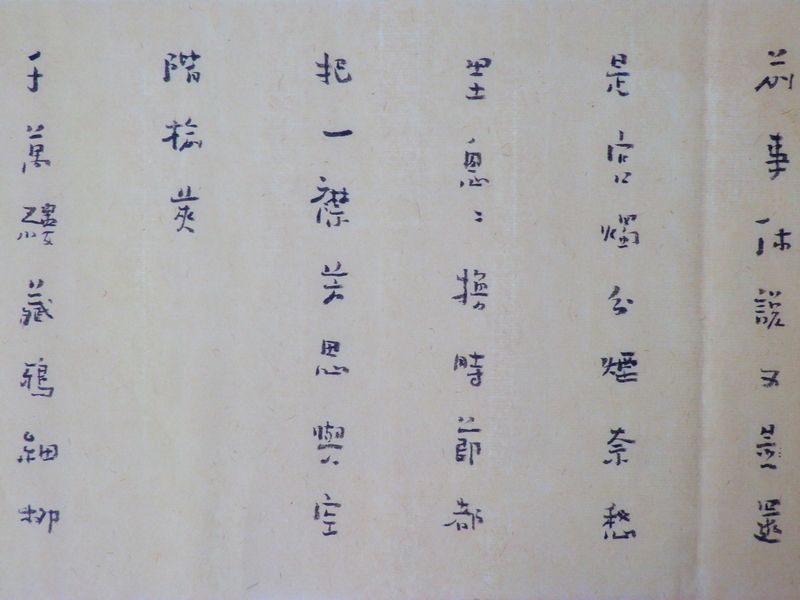 前事休說又是還
是宮燭分煙奈愁
里悤〻換時節都
把一襟芳思與空
階榆莢
千萬縷藏鴉細柳